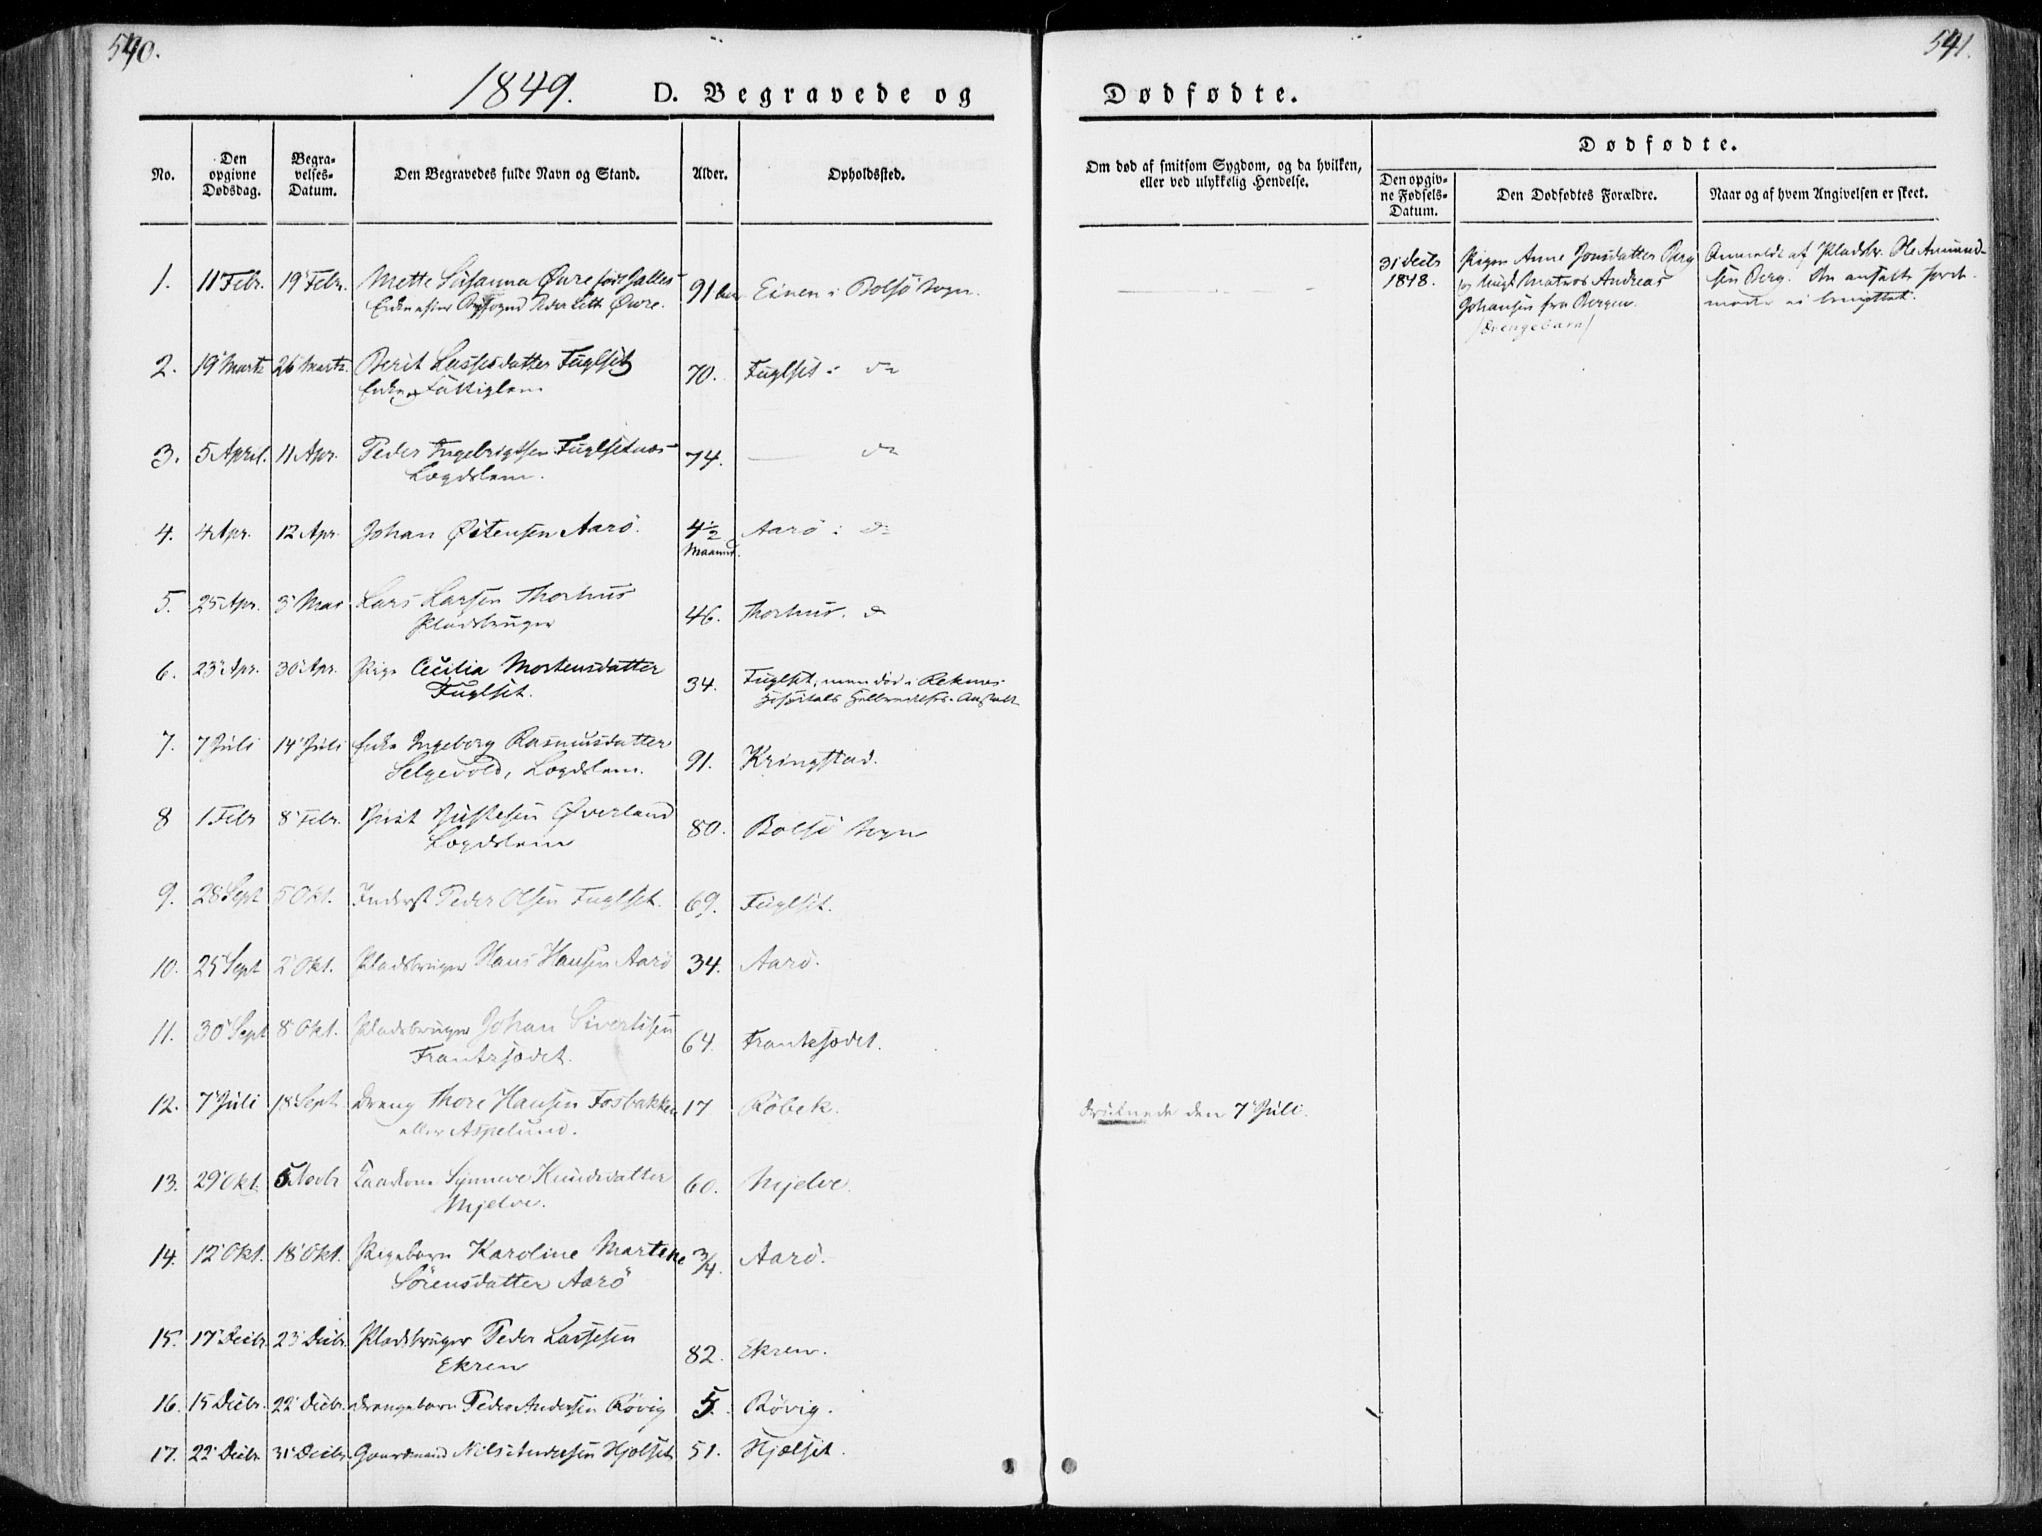 540.
1849. D. Begravede og
No.
Den opgivne Dødsdag.
Begravelses-Datum.
Den Begravedes fulde Navn og Stand.
Alder.
Opholdssted.
1. 11 Febr. 19 Febr. Mette Susanna Øvre født Salles 91 Einen i Bolsø Sogn.
Enke efter Peder Øvre.
2. 19 Marts 26 Marts. Berit Lassesdatter Fuglset 70. Fuglset i do
Enke og Fattiglem
3. 5 April. 11 Apr. Peder Ingebrigtsen Fuglsetnæs 74. — do
Lægdslem.
4. 4 Apr. 12 Apr. Johan Østensen Aarö. 4½ Maaned. Aarö i do
5. 25 Apr. 3 Mai Lars Larsen Thorhus 46. Thorhus. do
Pladsbruger
6. 23 Apr. 30 Apr. Pige Cecilia Mortensdatter 34. Fuglset, men død i Reknes
Fuglset. Hospitals Helbredelses-Anstalt
7. 7 Juli 14 Juli Enke Ingeborg Rasmusdatter 91. Kringstad.
Selgevold, Lægdslem.
8 1 Febr 8 Febr. Øverland 80. Bolsö Sogn
Lægdslem
9. 28 Sept 5 Okt. Inderst Peder Olsen Fuglset. 69. Fuglset.
10. 25 Sept 2 Okt. Pladsbruger Hans Hansen Aarö 34. Aarö.
11. 30 Sept 8 Okt. Pladsbruger Johan Sivertsen 64. Frantsjødet.
Frantzjødet.
12. 7 Juli 18 Sept. Dreng Thore Hansen Fosbakken 17 Röbek.
eller Aspelund.
13. 29 Okt. 5 Novbr Gaardkone Synneve Knudsdatter 60. Mjelve.
Mjelve.
14. 12 Okt. 18 Okt. Pigebarn Karoline Martine 3/4. Aarö.
Sörensdatter Aarö
15. 17 Decbr. 23 Decbr. Pladsbruger Peder Larsesen 82. Ekren.
Ekren
16. 15 Decbr. 22 Decbr. Drengebarn Peder Andersen Rövig 5. Rövig.
17. 22 Decbr. 31 Decbr Gaardmand Nils Andersen Hjelset 51. Hjelset.
541.
Dødfødte.
Om død af smitsom Sygdom, og da hvilken, eller ved ulykkelig Hendelse.
Dødfødte.
Den opgivne Fødsels-Datum.
Den Dødfødtes Forældre.
Naar og af hvem Angivelsen er skeet.
31 Decbr Pigen Anne Jonsdatter Berg Anmeldt af Pladsbr. Ole Amund-
1848. og Ungk. Matros Andreas sen Berg. Den ansatte Jord-
Johansen fra Bergen. moder ei benyttet.
(Drengebarn)
druknede den 7 Juli.